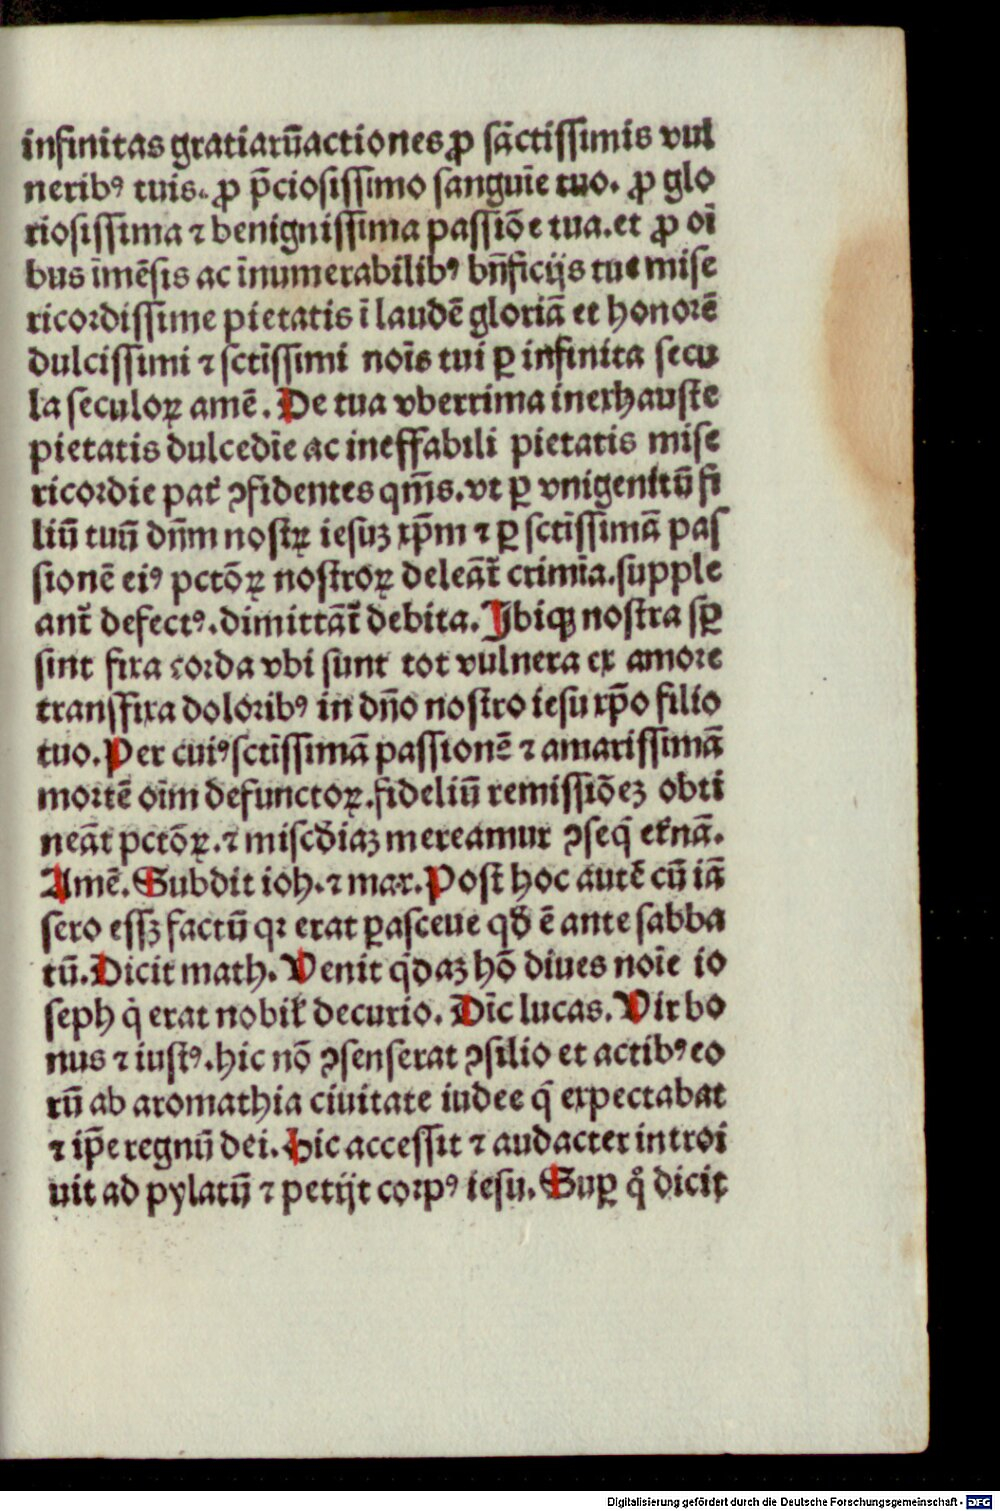 infinitas gratiarūactiones ꝓ sāctissimis vul
neribꝰ tuis. ꝓ p̄ciosissimo sanguīe tuo. ꝓ glo
riosissima ⁊ benignissima passiōe tua.et ꝓ oī
bus īmēsis ac īnumerabilibꝰ bn̄ficijs tue mise
ricordissime pietatis ī laudē gloriā et honorē
dulcissimi ⁊ sctīssimi noīs tui ꝑ infinita secu
la seculoꝝ amē. De tua vberrima inexhauste
pietatis dulcedīe ac ineffabili pietatis mise
ricordie pat̄ ꝯfidentes qm̄s.vt ꝑ vnigenitū fi
liū tuū dn̄m nostꝝ iesuꝫ xp̄m ⁊ ꝑ sctīssimā pas
sionē eiꝰ pctōꝝ nostroꝝ deleāt̄ crimīa.supple
ant̄ defectꝰ.dimittāt̄ debita. Ibiqꝫ nostra sꝑ
sint fixa corda vbi sunt tot vulnera ex amore
transfixa doloribꝰ in dn̄o nostro iesu xp̄o filio
tuo. Per cuiꝰ sctīssimā passionē ⁊ amarissimā
mortē oīm defunctoꝝ.fideliū remissiōeꝫ obti
neāt pctōꝝ.⁊ misc̄diaꝫ mereamur ꝯseq̄ et̄nā.
Amē. Subdit ioh.⁊ mar. Post hoc autē cū iā
sero essꝫ factū qꝛ erat ꝑasceue qd̄ ē ante sabba
tū. Dicit math. Venit q̇daꝫ hō diues noīe io
seph q̇ erat nobil̄ decurio. Dīc lucas. Vir bo
nus ⁊ iustꝰ.hic nō ꝯsenserat ꝯsilio et actibꝰ eo
rū ab aromathia ciuitate iudee q̄ expectabat
⁊ ip̄e regnū dei. Hic accessit ⁊ audacter introi
uit ad pylatū ⁊ petijt corpꝰ iesu. Suꝑ qͦ dicit
Digitalisierung gefördert durch die Deutsche Forschungsgemeinschaft - DFG